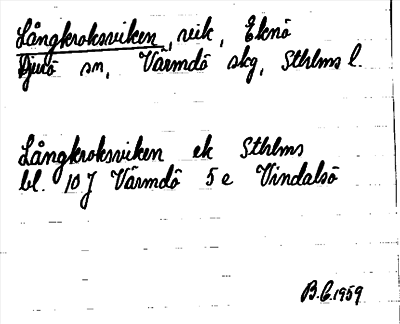 Långkroksviken, vik, Eknö
Djurö sn, Värmdö skg, Sthlms l.
Långkroksviken ek Sthlms
bl. 10 J Värmdö 5 e Vindalsö
B.C. 1959